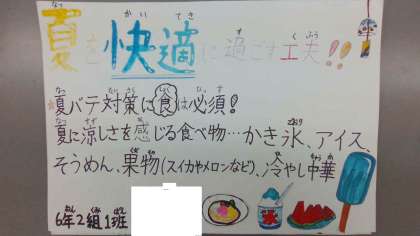 夏を快適に過ごす工夫!!
夏バテ対策に食は必須!
夏に涼しさを感じる食べ物…かき氷、アイス、
そうめん、果物(スイカやメロンなど)、冷やし中華
6年2組1班
氷